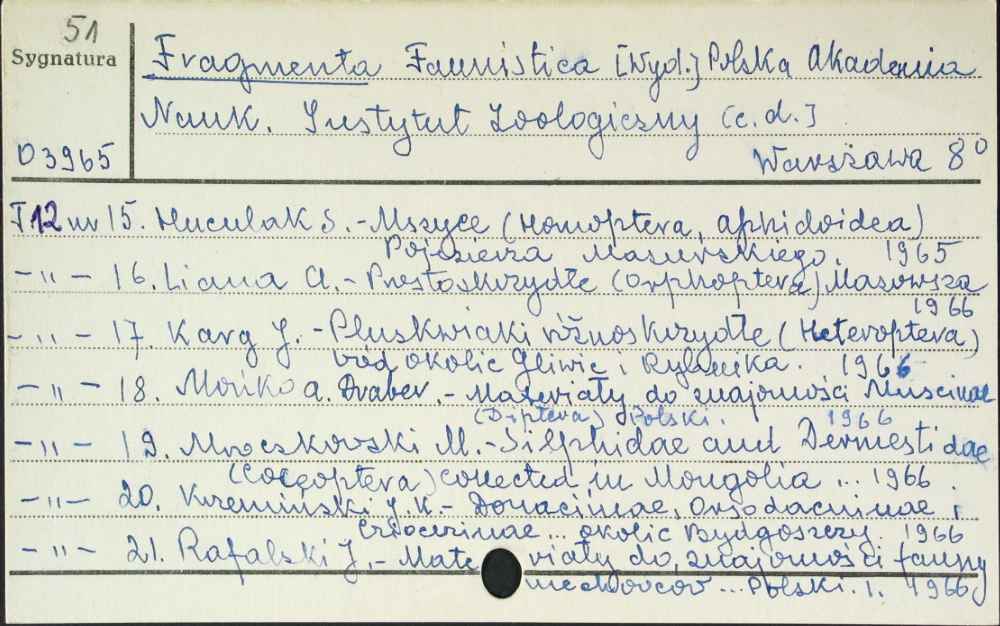 51
Sygnatura
Fragmenta Faunistica [Wyd.] Polska Akademia
Nauk. Instytut Zoologiczny [c.d.]
D3965
Warszawa 8°
T12 nr 15. Huculak S. - Mszyce (Homoptera, Aphidoidea)
Pojezierza Mazurskiego. 1965
-"- 16. Liana A. - Prostoskrzydłe (Orphoptera) Mazowsza
1966
-"- 17. Karg J. - Pluskwiaki różnoskrzydłe (Heteroptera)
wód okolic Gliwic i Rybnika. 1966
-"- 18. Mońko A. Draber. - Materiały do znajomości Muscinae
(Diptera) Polski. 1966
-"- 19. Mroczkowski M. - Silphidae and Dermestidae
(Coleoptera) collected in Mongolia ... 1966.
-"- 20. Krzemiński J.K. - Donaciinae, Orsodacninae i
Criocerinae ... okolic Bydgoszczy. 1966
-"- 21. Rafalski J. - Materiały do znajomości fauny
mechowców ... Polski. I. 1966